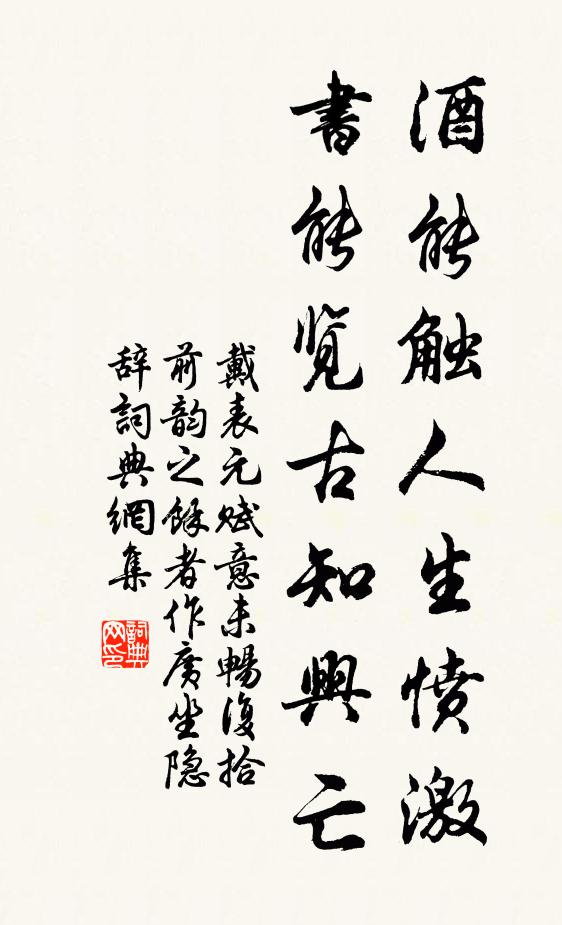 酒能触人生愤激
書能览古知興亡
戴表元赋意未暢復拾
前韵之餘者作廣坐隐
辞詞典網集
詞典网印